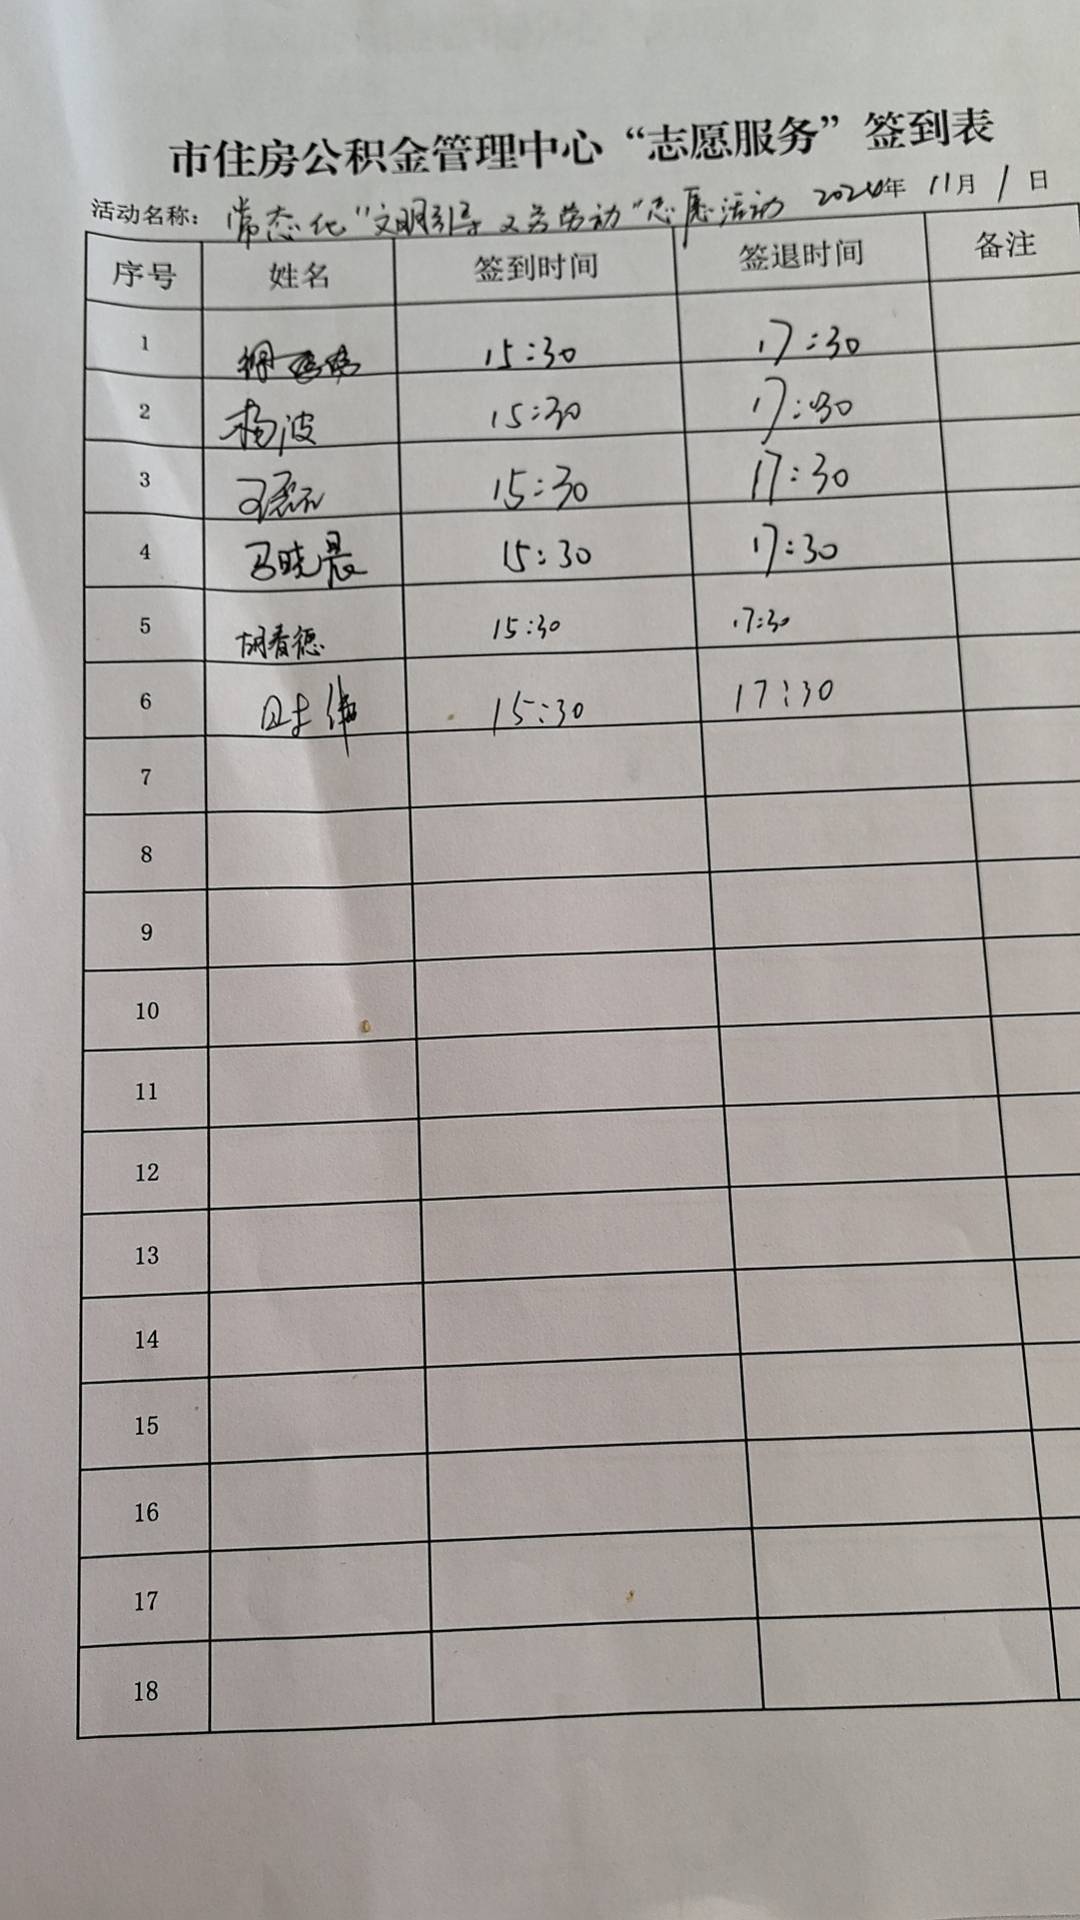 市住房公积金管理中心“志愿服务”签到表
活动名称：常态化“文明引导 义务劳动”志愿活动 2024年 11月 1日
序号 姓名 签到时间 签退时间 备注
1 15:30 17:30
2 杨波 15:30 17:30
3 15:30 17:30
4 马晓晨 15:30 17:30
5 胡春德 15:30 17:30
6 15:30 17:30
7
8
9
10
11
12
13
14
15
16
17
18